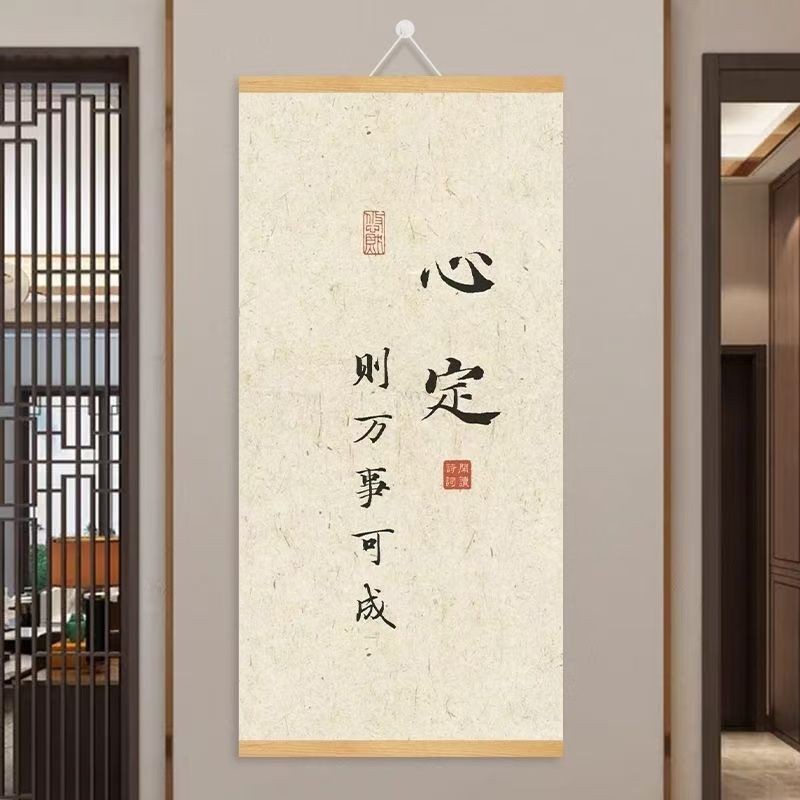 心定
則万事可成
閒讀
詩詞